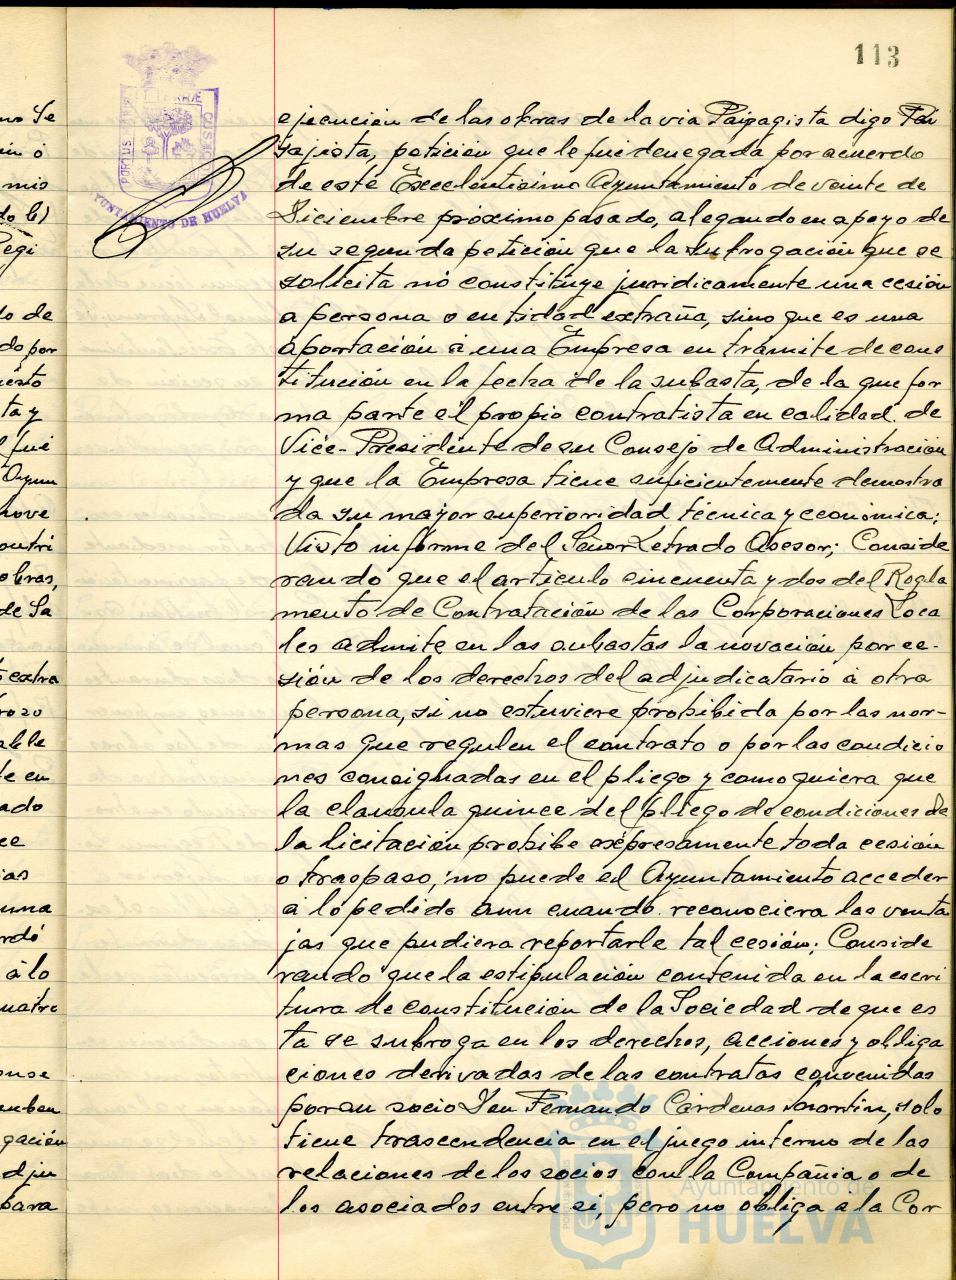 113
ejecución de las obras de la via Paipagista digo Pai
sajista, petición que le fui denegada por acuerdo
de este Excelentisimo Ayuntamiento de veinte de
Diciembre próximo pasado, alegando en apoyo de
su segunda petición que la subrogación que se
solicita no constituye juridicamente una cesión
a persona o entidad extraña, sino que es una
aportación a una Empresa en trámite de cons
titución en la fecha de la subasta, de la que for
ma parte el propio contratista en calidad de
Vice-Presidente de su Consejo de Administración
y que la Empresa tiene suficientemente demostra
da su mayor superioridad técnica y económica;
Visto informe del Señor Letrado Asesor; Conside
rando que el articulo cincuenta y dos del Regla
mento de Contratación de las Corporaciones Loca
les admite en las subastas la novación por ce-
sión de los derechos del adjudicatario á otra
persona, si no estuviere prohibida por las nor-
mas que regulen el contrato o por las condicio
nes consignadas en el pliego y como quiera que
la clausula quince del pliego de condiciones de
la licitación prohibe expresamente toda cesión
o traspaso, no puede el Ayuntamiento acceder
á lo pedido aun cuando reconociera las venta
jas que pudiera reportarle tal cesión; Conside
rando que la estipulación contenida en la escri
tura de constitución de la Sociedad de que es
ta se subroga en los derechos, acciones y obliga
ciones derivadas de las contratas convenidas
por su socio Don Fernando Cárdenas Martin, solo
tiene trascendencia en el juego interno de las
relaciones de los socios con la Compañia o de
los asociados entre si, pero no obliga a la Cor
YUNTAMIENTO DE HUELVA
Ayuntamiento de
HUELVA